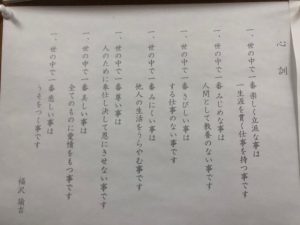 心訓
一、世の中で一番楽しく立派な事は
一生涯を貫く仕事を持つ事です
一、世の中で一番みじめな事は
人間として教養のない事です
一、世の中で一番さびしい事は
する仕事のない事です
一、世の中で一番みにくい事は
他人の生活をうらやむ事です
一、世の中で一番尊い事は
人のために奉仕し決して恩にきせない事です
一、世の中で一番美しい事は
全てのものに愛情をもつ事です
一、世の中で一番悲しい事は
うそをつく事です
福沢諭吉